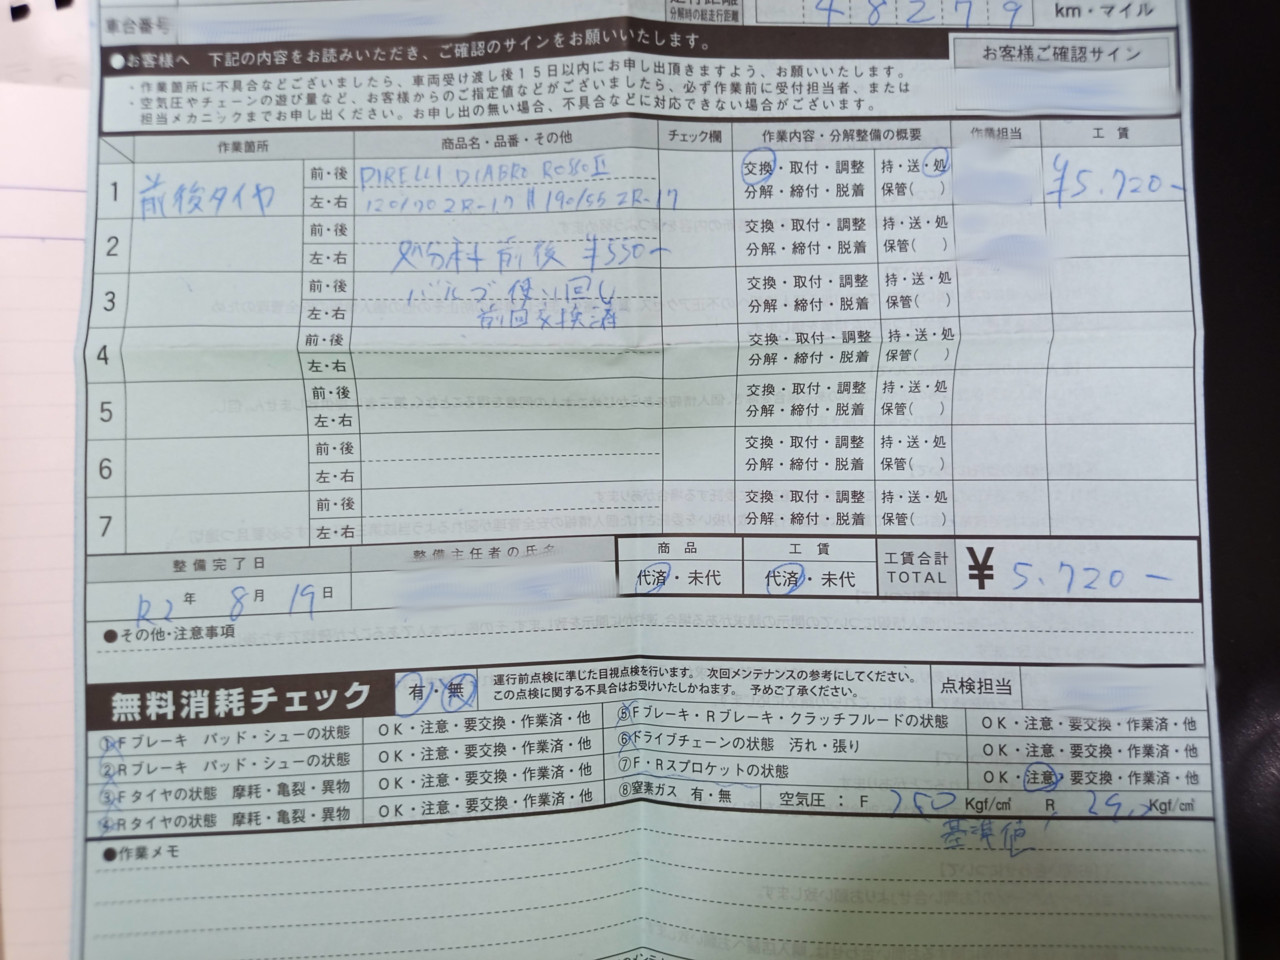 車台番号
分解時の総走行距離
48279
km・マイル
●お客様へ 下記の内容をお読みいただき、ご確認のサインをお願いいたします。
お客様ご確認サイン
・作業箇所に不具合などございましたら、車両受け渡し後15日以内にお申し出頂きますよう、お願いいたします。
・空気圧やチェーンの遊び量など、お客様からのご指定値などがございましたら、必ず作業前に受付担当者、または
担当メカニックまでお申し出ください。お申し出の無い場合、不具合などに対応できない場合がございます。
作業箇所 商品名・品番・その他 チェック欄 作業内容・分解整備の概要 作業担当 工賃
1 前後タイヤ 前・後 PIRELLI DIABRO ROSSO II 交換・取付・調整 持・送・処 ¥5.720-
左・右 120/70 ZR-17 190/55 ZR-17 分解・締付・脱着 保管( )
2 前・後 交換・取付・調整 持・送・処
左・右 処分料 前後 ¥550- 分解・締付・脱着 保管( )
3 前・後 バルブ使い回し 交換・取付・調整 持・送・処
左・右 前回交換済 分解・締付・脱着 保管( )
4 前・後 交換・取付・調整 持・送・処
左・右 分解・締付・脱着 保管( )
5 前・後 交換・取付・調整 持・送・処
左・右 分解・締付・脱着 保管( )
6 前・後 交換・取付・調整 持・送・処
左・右 分解・締付・脱着 保管( )
7 前・後 交換・取付・調整 持・送・処
左・右 分解・締付・脱着 保管( )
整備完了日 整備主任者の氏名 商品 工賃 工賃合計
R2年 8月 19日 代済・未代 代済・未代 TOTAL ¥ 5.720-
●その他・注意事項
無料消耗チェック 有・無
運行前点検に準じた目視点検を行います。 次回メンテナンスの参考にしてください。
この点検に関する不具合はお受けいたしかねます。 予めご了承ください。
点検担当
①Fブレーキ パッド・シューの状態 OK・注意・要交換・作業済・他
②Rブレーキ パッド・シューの状態 OK・注意・要交換・作業済・他
③Fタイヤの状態 摩耗・亀裂・異物 OK・注意・要交換・作業済・他
④Rタイヤの状態 摩耗・亀裂・異物 OK・注意・要交換・作業済・他
⑤Fブレーキ・Rブレーキ・クラッチフルードの状態 OK・注意・要交換・作業済・他
⑥ドライブチェーンの状態 汚れ・張り OK・注意・要交換・作業済・他
⑦F・Rスプロケットの状態 OK・注意・要交換・作業済・他
⑧窒素ガス 有・無 空気圧: F 250 Kgf/c㎡ R 290 Kgf/c㎡
基準値
●作業メモ